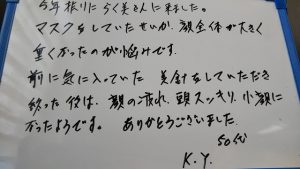 5年振りにらく美さんに来ました。
マスクをしていたせいか、顔全体が大きく
重くかったのが悩みです。
前に気に入っていた 美針をしていただき
終った後は、顔の疲れ、頭スッキリ、小顔に
なったようです。 ありがとうございました。
50代
K.Y.